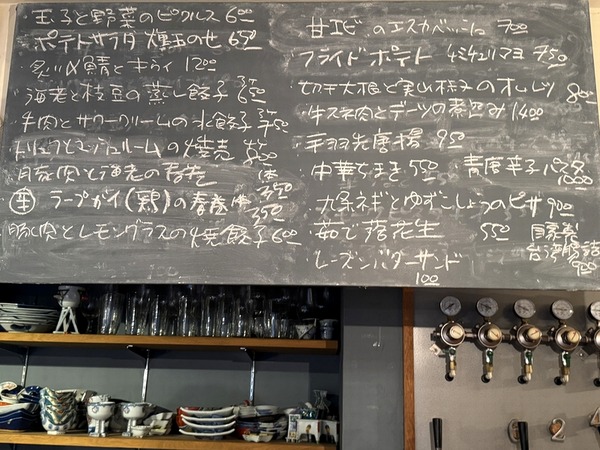 玉子と野菜のピクルス 600
ポテトサラダ 燻玉のせ 650
炙り〆鯖とキウイ 1200
海老と枝豆の蒸し餃子 3ケ 650
牛肉とサワークリームの水餃子 3ケ 750
トリュフとマッシュルームの焼売
豚肉と海老の春巻 1本 350
辛 ラープガイ(鶏)の春巻 1本 350
豚肉とレモングラスの焼餃子 600
甘エビのエスカベッシュ 700
フライドポテト マヨ 750
切干大根と実山椒のオムレツ 800
牛スネ肉とデーツの煮込み 1400
手羽先唐揚 950
中華ちまき 550 ・青唐辛子パスタ 1000
九条ネギとゆずこしょうのピザ 900
茹で落花生 550
自家製 台湾腸詰 900
レーズンバターサンド 100
2